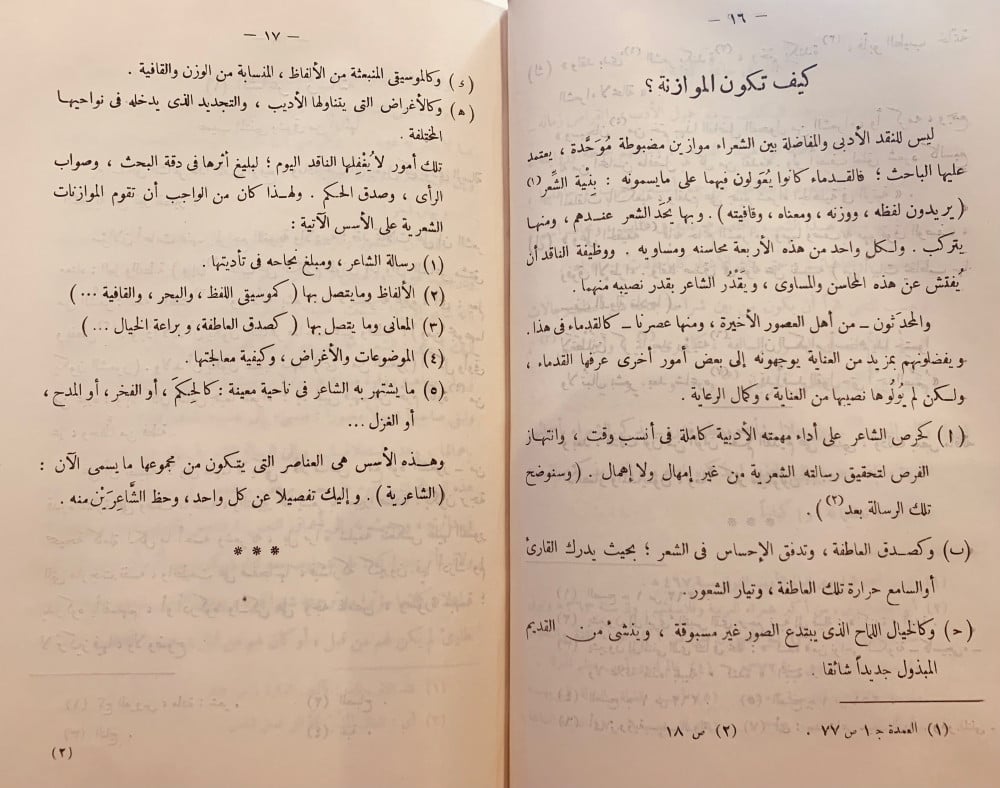 — ١٦ —
كيف تكون الموازنة ؟
ليس للنقد الأدبى والمفاضلة بين الشعراء موازين مضبوطة مُوَحَّدة ، يعتمد
عليها الباحث ؛ فالقدماء كانوا يُعَوِّلون فيهما على مايسمونه : بِنْيَة الشِّعر (١)
( يريدون لفظه ، ووزنه ، ومعناه ، وقافيته ) . وبها يُحَدّ الشعر عندهم ، ومنها
يتركب . ولكل واحد من هذه الأربعة محاسنه ومساويه . ووظيفة الناقد أن
يُفتش عن هذه المحاسن والمساوى ، ويَقْدُر الشاعر بقدر نصيبه منهما .
والمحدَثون — من أهل العصور الأخيرة ، ومنها عصرنا — كالقدماء فى هذا .
ويفضلونهم بمزيد من العناية يوجهونه إلى بعض أمور أخرى عرفها القدماء ،
ولكن لم يُولُوها نصيبها من العناية ، وكمال الرعاية .
(ا) كحرص الشاعر على أداء مهمته الأدبية كاملة فى أنسب وقت ، وانتهاز
الفرص لتحقيق رسالته الشعرية من غير إمهال ولا إهمال . ( وسنوضح
تلك الرسالة بعد (٢) ) .
(ب) وكصدق العاطفة ، وتدفق الإحساس فى الشعر ؛ بحيث يدرك القارئ
أو السامع حرارة تلك العاطفة ، وتيار الشعور .
(ح) وكالخيال اللماح الذى يبتدع الصور غير مسبوقة ، وينشئ من القديم
المبذول جديداً شائقا .
(١) العمدة ج ١ ص ٧٧ . (٢) ص ١٨
— ١٧ —
(ء) وكالموسيقى المنبعثة من الألفاظ ، المنسابة من الوزن والقافية .
(ه) وكالأغراض التى يتناولها الأديب ، والتجديد الذى يدخله فى نواحيها
المختلفة .
تلك أمور لا يُغْفِلها الناقد اليوم ؛ لبليغ أثرها فى دقة البحث ، وصواب
الرأى ، وصدق الحكم . ولهذا كان من الواجب أن تقوم الموازنات
الشعرية على الأسس الآتية :
(١) رسالة الشاعر ، ومبلغ نجاحه فى تأديتها .
(٢) الألفاظ وما يتصل بها ( كموسيقى اللفظ ، والبحر ، والقافية ... )
(٣) المعانى وما يتصل بها ( كصدق العاطفة ، وبراعة الخيال ... )
(٤) الموضوعات والأغراض ، وكيفية معالجتها .
(٥) ما يشتهر به الشاعر فى ناحية معينة : كالحِكمَ ، أو الفخر ، أو المدح ،
أو الغزل ...
وهذه الأسس هى العناصر التى يتكون من مجموعها ما يسمى الآن :
( الشاعرية ) . وإليك تفصيلا عن كل واحد ، وحظ الشَّاعِرَيْن منه .
* * *
(٢)